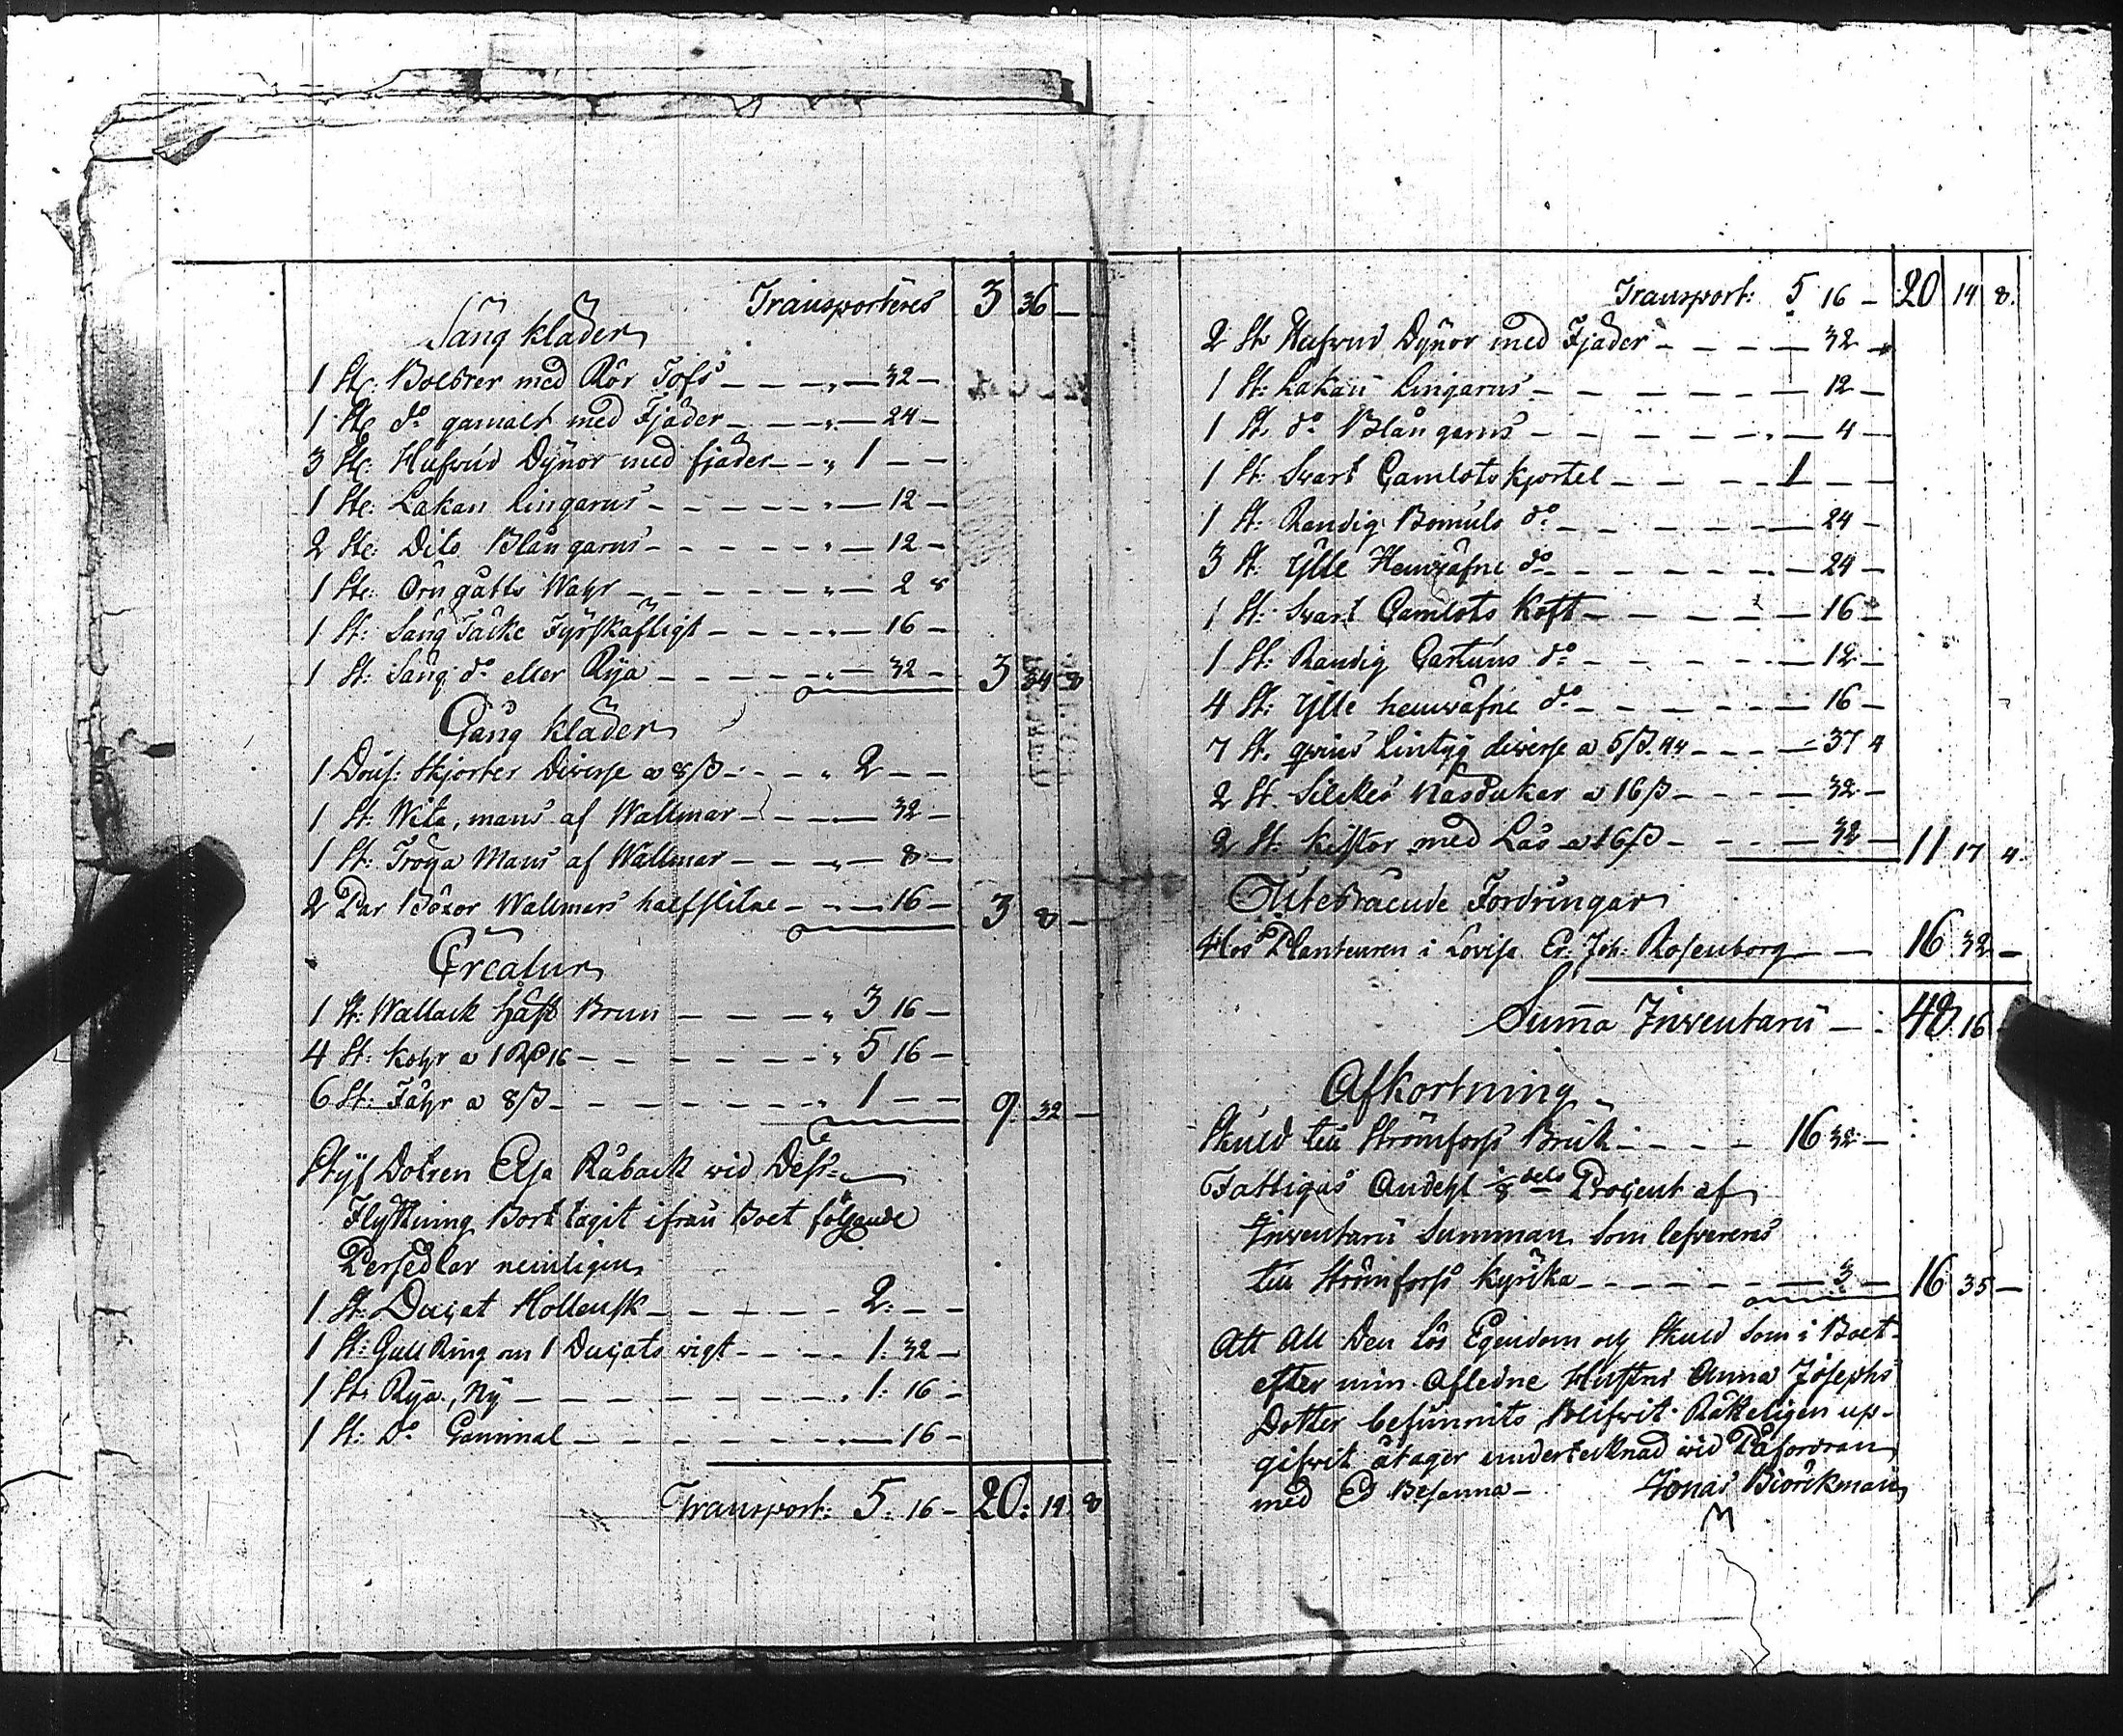 Transporteres 3 36 —
Säng kläder
1 St: Bolster med Rör Tofs — — — „ — 32 —
1 St: do gamalt med Fjäder — — „ — 24 —
3 St: Hufvud Dÿnor med fjäder — „ 1 — —
1 St: Lakan Lingarns — — — — — „ — 12 —
2 St: Dito Blångarns — — — — — „ — 12 —
1 St: Örngåtts Wahr — — — — — „ — 2 8
1 St: Säng Täcke Fÿrskäftigt — — — „ — 16 —
1 St: Säng do eller Rÿa — — — — — „ — 32 — 3 34 8
Gång kläder
1 Dous: Skjorter Diverse a 8/3 — — — „ 2 — —
1 St: Wita, mans af Wallmar — — — — 32 —
1 St: Tröya Mans af Wallmar — — — „ — 8 —
2 Par Böxor Wallmars half slitne — — — 16 — 3 8 —
Creatur
1 St: Wallack häst Brun — — — „ 3 16 —
4 St: kohr a 1 Rd 16 — — — — — — „ 5 16 —
6 St: Fåhr a 8/3 — — — — — — — „ 1 — — 9 32 —
Stÿf Dotren Elsa Råback wid Dess
Flÿttning Bort tagit ifrån Boet följande
Persedlar nemligen
1 St: Ducat Hollensk — — — — — 2. — —
1 St: Gull Ring om 1 Ducats wigt — — — 1: 32 —
1 St: Rÿa, Nÿ — — — — — — — — „ 1: 16 —
1 St: Do Gammal — — — — — — — „ — 16 —
Transport: 5: 16 — 20: 14: 8
Transport: 5 16 — 20 14 8.
2 St: Hufvud Dÿnor med Fjäder — — — — 32 —
1 St: Lakan Lingarns — — — — — — 12 —
1 St: do Blångarns — — — — — — „ — 4 —
1 St: Svart Camlots kjortel — — — — 1 — —
1 St: Randig Bomuls do — — — — — — 24 —
3 St: Ÿlle Hemväfne do — — — — — — — 24 —
1 St: Svart Camlots Koft — — — — — 16 —
1 St: Randig Cartuns do — — — — — 12 —
4 St: Ÿlle hemväfne do — — — — — — 16 —
7 St. Lintÿg diverse a 5/3. 4 — — — 37 4
2 St Silckes Näsdukar a 16/3 — — — 32 —
2 St: kistor med Lås a 16/3 — — — — 32 — 11 17 4
Utestående Fordringar
Hos Planteuren i Lovisa Er. Joh: Rosenborg — — 16 32 —
Suma Inventarii — — 48 16
Afkortning
Skuld till Strömfors Bruk — — — — 16 32 —
Fattigas Andehl 1/8 dels Procent af
Inventarii Summan som lefvereres
till Strömfors Kyrka — — — — — — — 3 — 16 35 —
Att All Den Lös Egendom och Skuld som i Boet
efter min Afledne Hustru Anna Josephs
Dotter befunnits Blifvit Räkteligen up-
gifvit åtager undertecknad wid Påfordran
med Ed Besanna — Jonas Biörckman